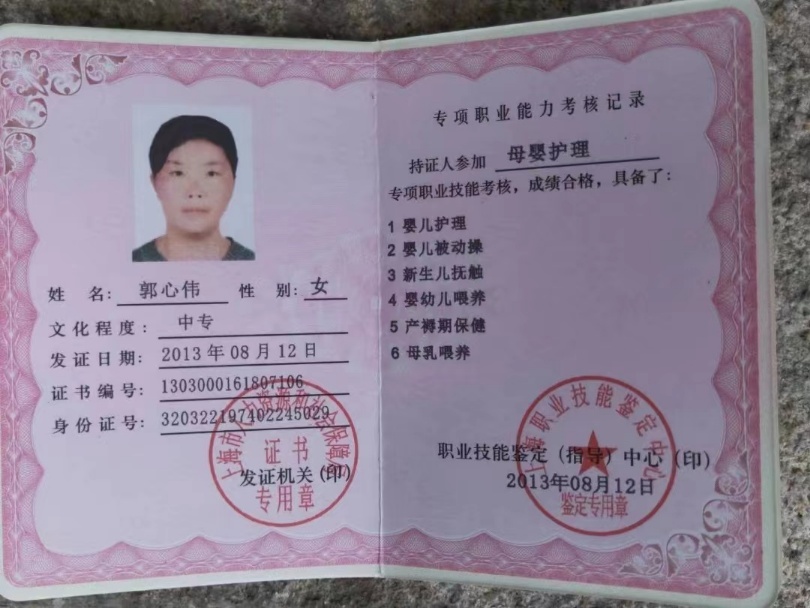 姓 名: 郭心伟 性 别: 女
文化程度: 中专
发证日期: 2013年08月12日
证书编号: 1303000161807106
身份证号: 320322197402245029
上海市人力资源和社会保障局
证书
专用章
发证机关(印)
专项职业能力考核记录
持证人参加 母婴护理
专项职业技能考核,成绩合格,具备了:
1 婴儿护理
2 婴儿被动操
3 新生儿抚触
4 婴幼儿喂养
5 产褥期保健
6 母乳喂养
职业技能鉴定(指导)中心(印)
2013年08月12日
职业技能鉴定中心
鉴定专用章